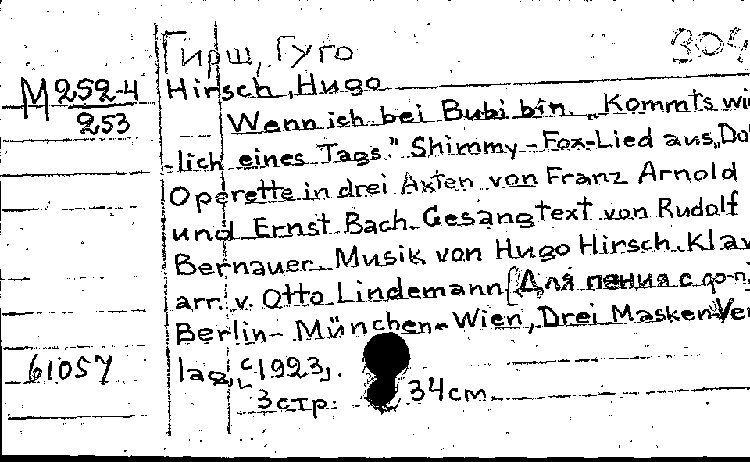 Гирш, Гуго
304
М 252-4
253
Hirsch, Hugo
Wenn ich bei Bubi bin. „Kommts wi
-lich eines Tags." Shimmy-Fox-Lied aus „Do
Operette in drei Akten von Franz Arnold
und Ernst Bach. Gesangtext von Rudolf
Bernauer. Musik von Hugo Hirsch. Klav
arr. v. Otto Lindemann [Для пения с ф-п
Berlin-München-Wien, Drei Masken Ver
61057
lag, [1923].
3 стр. 34 cm.